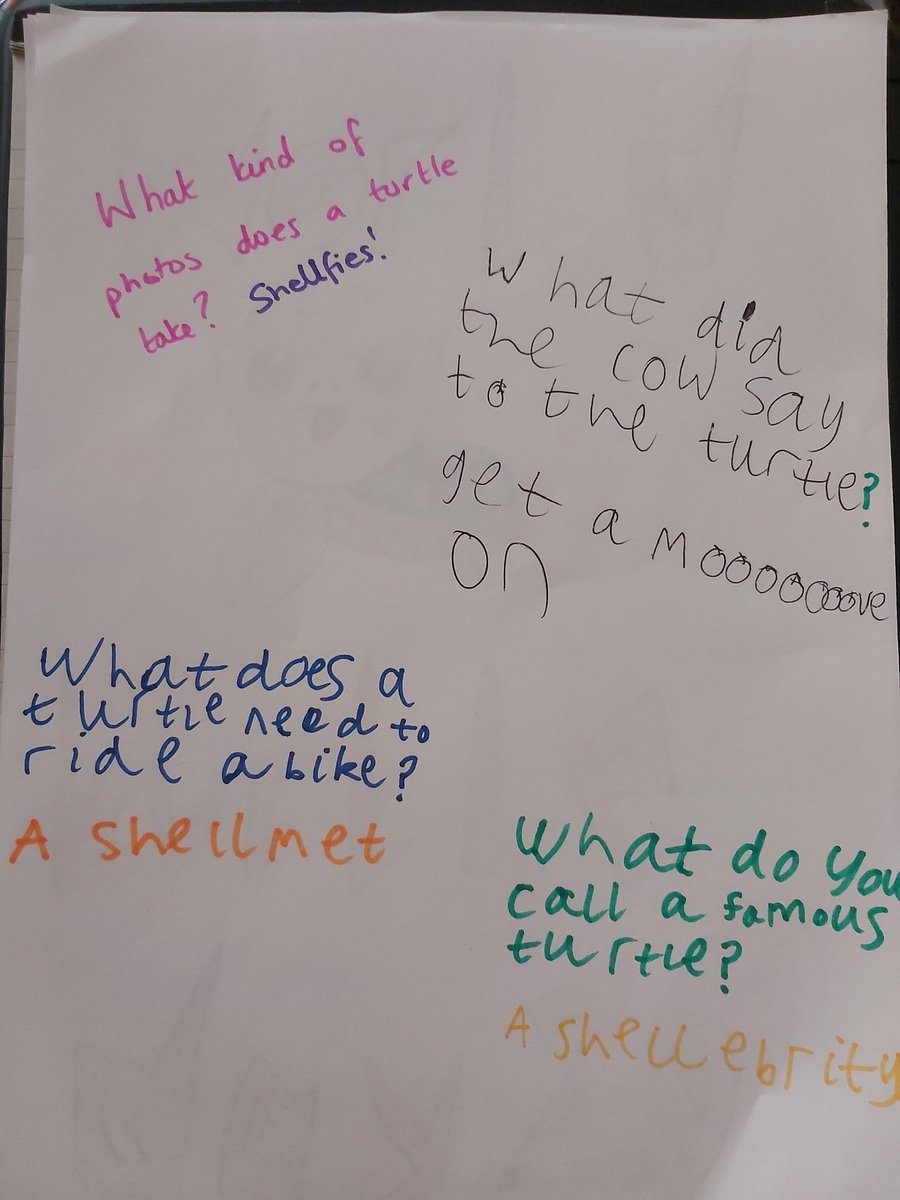 What kind of
photos does a turtle
take? Shellfies!
What did
the cow say
to the turtle?
get a moooooooove
on
What does a
turtle need to
ride a bike?
A shellmet
What do you
call a famous
turtle?
A shellebrity